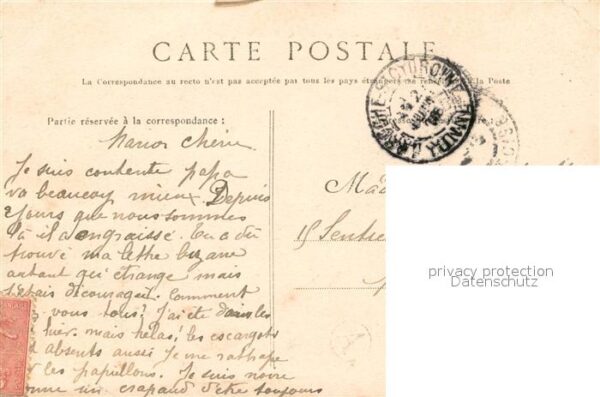 CARTE POSTALE
La Correspondance au recto n'est pas acceptée par tous les pays étrangers (se renseigner à la Poste
Partie réservée à la correspondance :
Manon Chérie
Je suis contente papa
va beaucoup mieux. Depuis
2 jours que nous sommes
là il a engraissé. Tu a dû
trouvé ma lettre bizarre
autant qu'étrange mais
j'étais découragée. Comment
vous tous? J'ai été dans les
hier. mais hélas! les escargots
absents aussi Je me rattrape
les papillons. Je suis noire
comme un crapaud d'être toujours
Mad
15 Sentier
privacy protection
Datenschutz